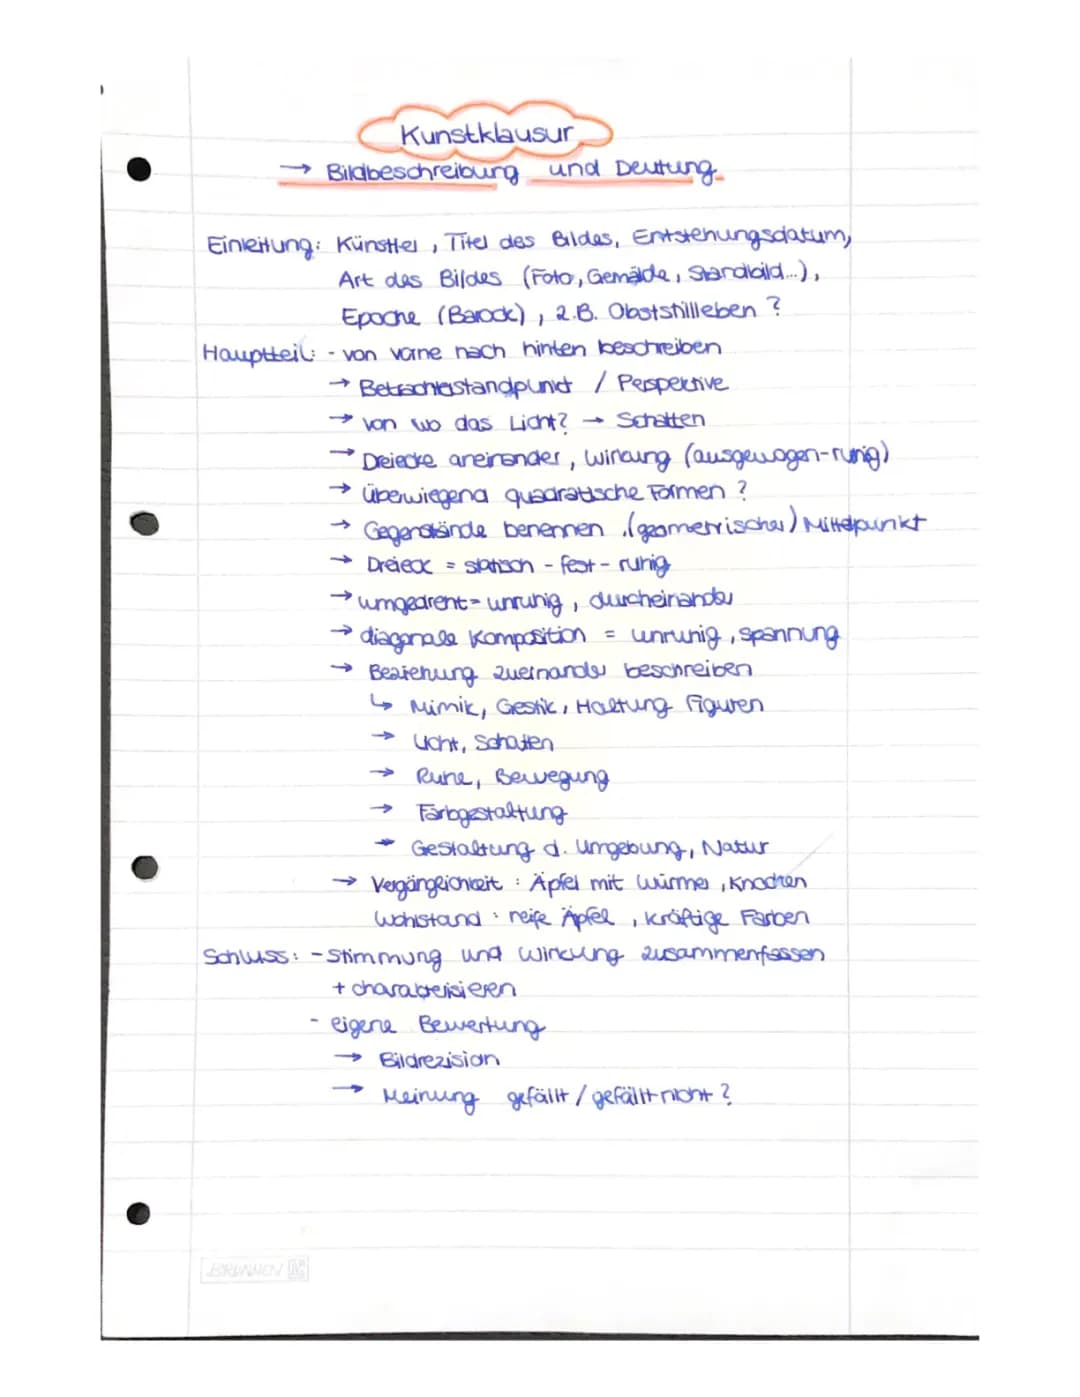 Kunstklausur
→ Bildbeschreibung und Deutung
Einleitung: Künstler, Titel des Bildes, Entstehungsdatum,
Art des Bildes (Foto, Gemälde, Standbild...),
Epoche (Barock), z.B. Obststillleben?
Hauptteil: - von vorne nach hinten beschreiben
→ Betrachterstandpunkt / Perspektive
→ von wo das Licht? → Schatten
→ Dreiecke aneinander, Wirkung (ausgewogen-ruhig)
→ überwiegend quadratische Formen?
→ Gegenstände benennen, (geometrischer) Mittelpunkt
→ Dreieck = statisch - fest - ruhig
→ umgedreht = unruhig, durcheinander
→ diagonale Komposition = unruhig, spannung
→ Beziehung zueinander beschreiben
↳ Mimik, Gestik, Haltung Figuren
→ Licht, Schatten
→ Ruhe, Bewegung
→ Farbgestaltung
→ Gestaltung d. Umgebung, Natur
→ Vergänglichkeit: Äpfel mit Würmer, Knochen
Wohlstand: reife Äpfel, kräftige Farben
Schluss: - Stimmung und Wirkung zusammenfassen
+ charakterisieren
- eigene Bewertung
→ Bildrezision
→ Meinung gefällt / gefällt nicht?
BRUNNEN